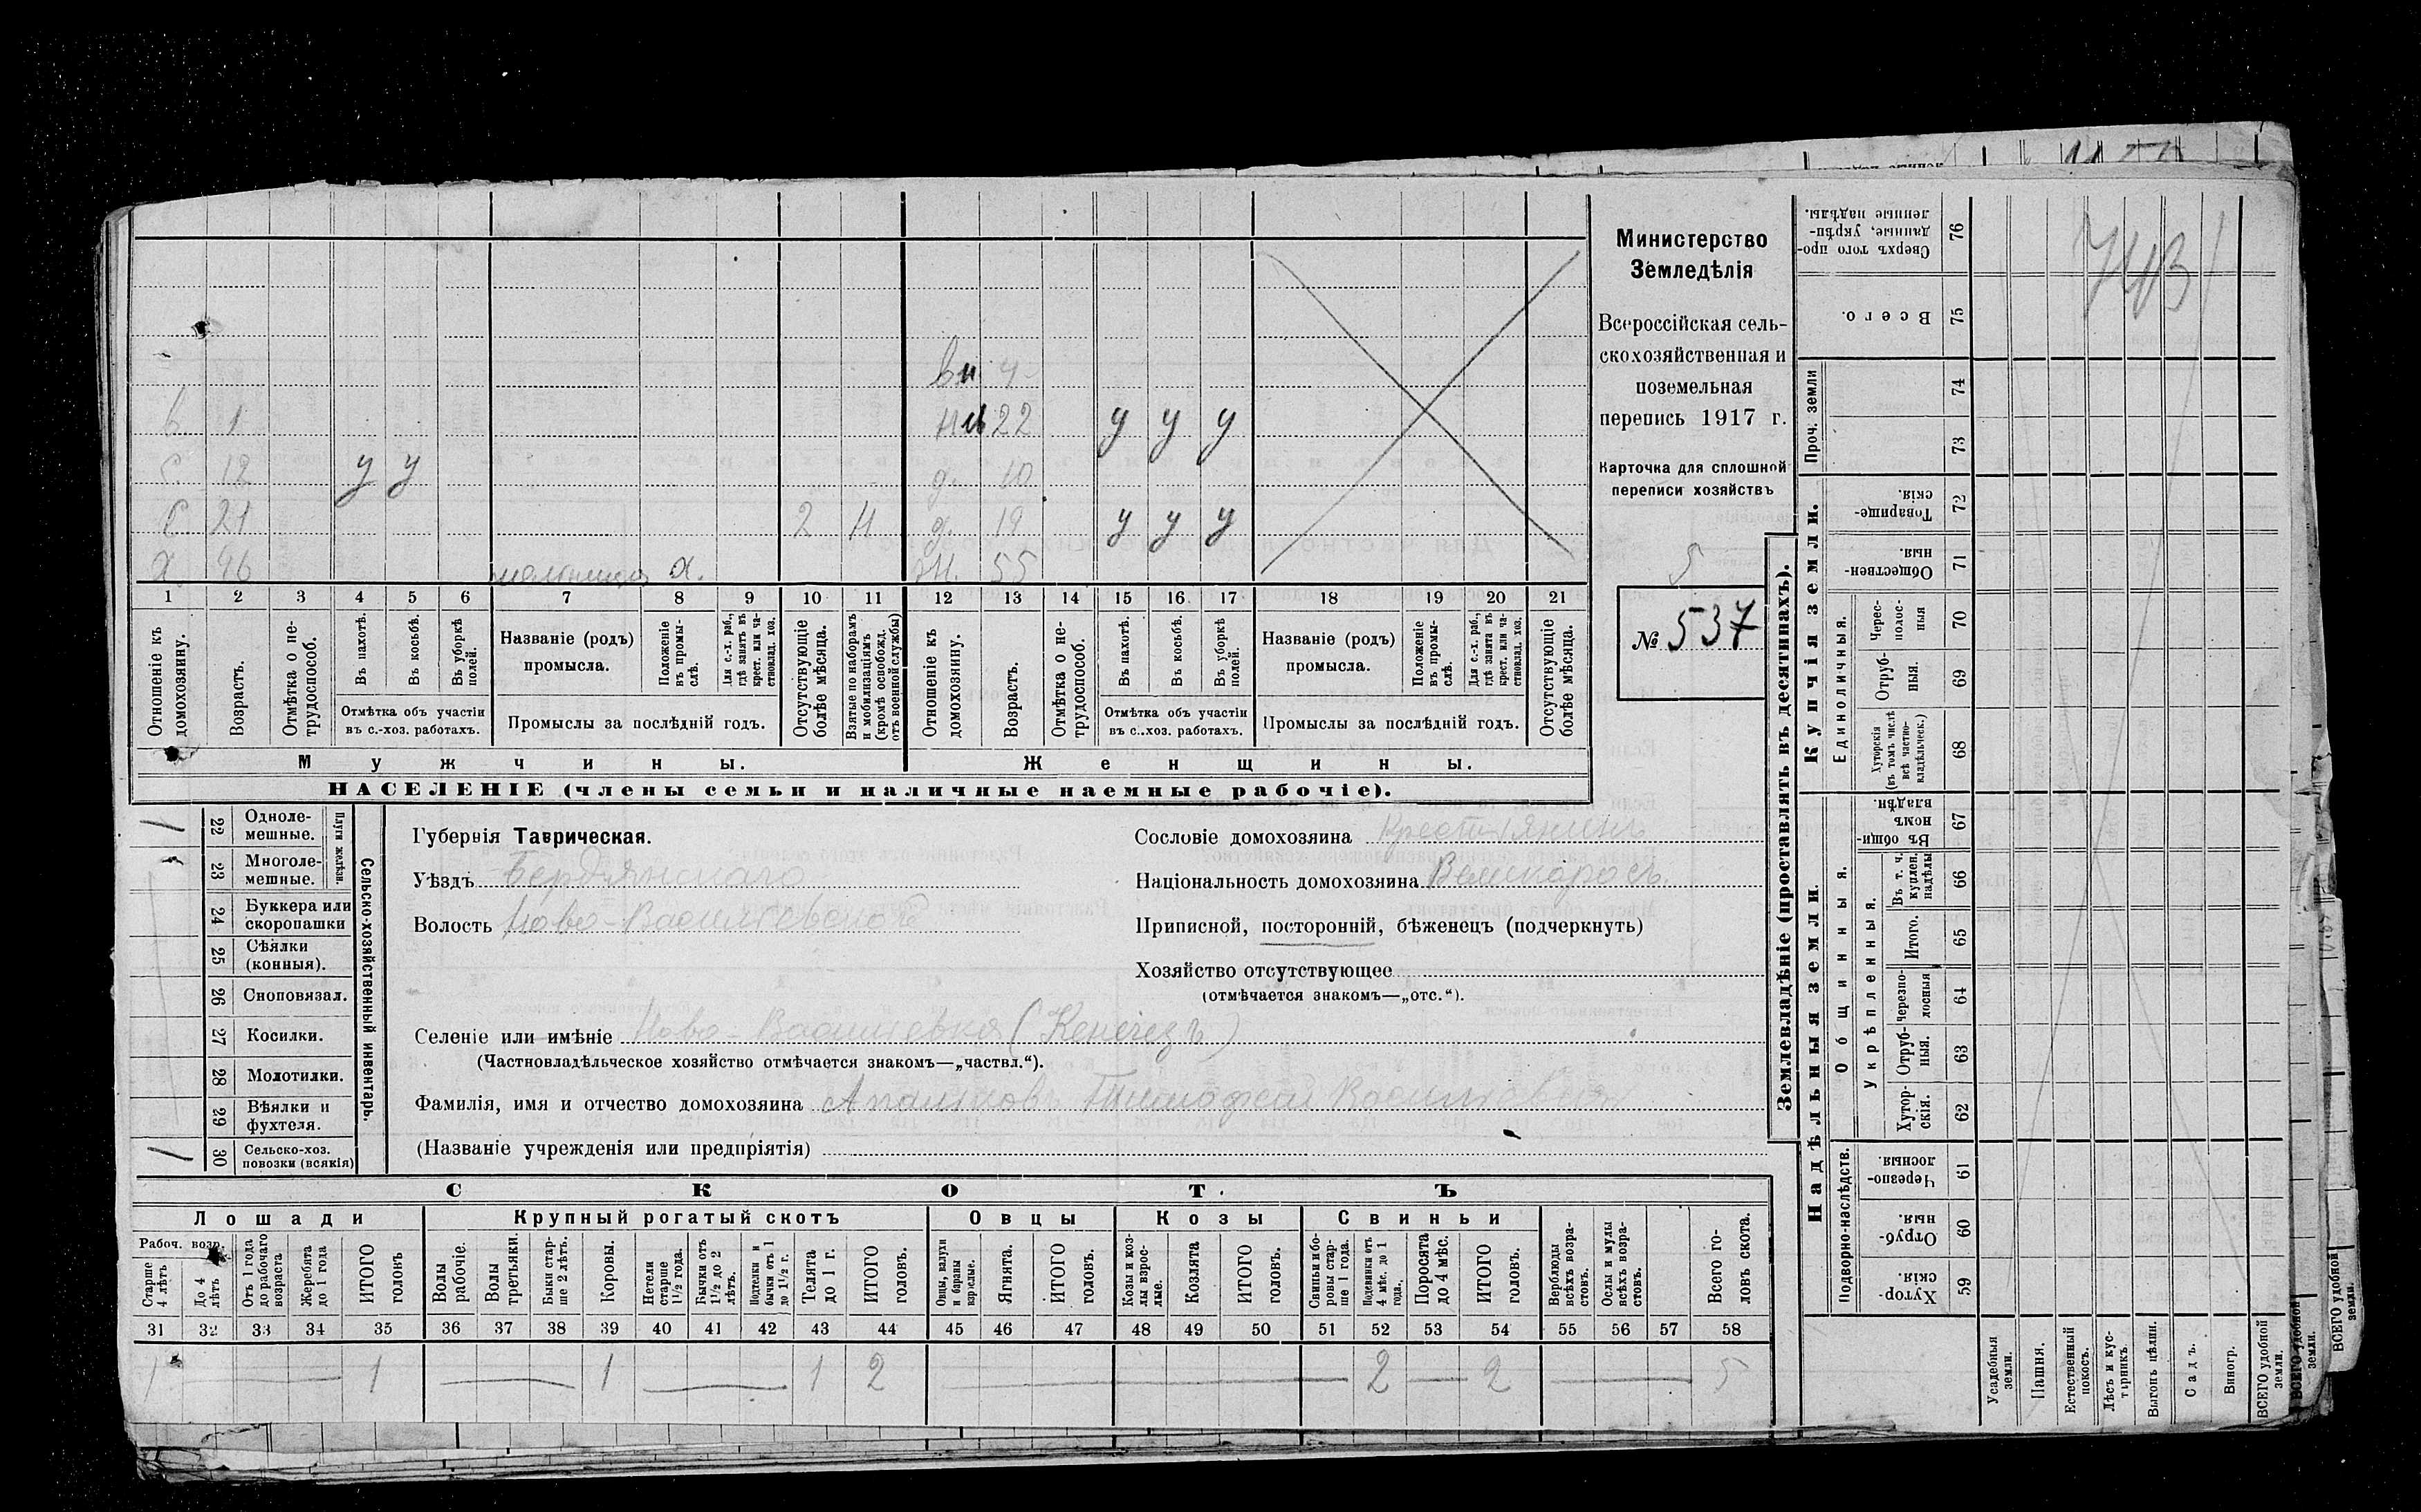 Министерство
Земледѣлія
Всероссійская сель-
скохозяйственная и
поземельная
перепись 1917 г.
Карточка для сплошной
переписи хозяйствъ
5
№ 537
вн 4
в 1 22 у у у
с 12 у у д. 10
с 21 2 Н д. 19 у у у
х 46 х. 55
1 2 3 4 5 6 7 8 9 10 11 12 13 14 15 16 17 18 19 20 21
Отношеніе къ домохозяину.
Возрастъ.
Отмѣтка о нетрудоспособ.
Въ пахотѣ.
Въ косьбѣ.
Въ уборкѣ полей.
Отмѣтка объ участіи
въ с.-хоз. работахъ.
Названіе (родъ)
промысла.
Положеніе въ промыслѣ.
Для с.-х. раб., гдѣ занятъ въ крест. или частновлад. хоз.
Промыслы за послѣдній годъ.
Отсутствующіе болѣе мѣсяца.
Взятые по наборамъ и мобилизаціямъ (кромѣ освобожд. отъ военной службы)
Отношеніе къ домохозяину.
Возрастъ.
Отмѣтка о нетрудоспособ.
Въ пахотѣ.
Въ косьбѣ.
Въ уборкѣ полей.
Отмѣтка объ участіи
въ с.-хоз. работахъ.
Названіе (родъ)
промысла.
Положеніе въ промыслѣ.
Для с.-х. раб., гдѣ занята въ крест. или частновлад. хоз.
Промыслы за послѣдній годъ.
Отсутствующіе болѣе мѣсяца.
Мужчины. Женщины.
НАСЕЛЕНІЕ (члены семьи и наличные наемные рабочіе).
Сельско-хозяйственный инвентарь.
Плуги желѣзн.
1 22 Одноле-
мешные.
23 Многоле-
мешные.
24 Буккера или
скоропашки
25 Сѣялки
(конныя).
26 Сноповязал.
27 Косилки.
28 Молотилки.
29 Вѣялки и
фухтеля.
1 30 Сельско-хоз.
повозки (всякія)
Губернія Таврическая.
Уѣздъ Бердянскаго
Волость Ново-Васильевской
Сословіе домохозяина Крестьянинъ
Національность домохозяина Великоросъ.
Приписной, посторонній, бѣженецъ (подчеркнуть)
Хозяйство отсутствующее
(отмѣчается знакомъ—„отс.“).
Селеніе или имѣніе Ново-Васильевка (Кенегезъ)
(Частновладѣльческое хозяйство отмѣчается знакомъ—„частвл.“).
Фамилія, имя и отчество домохозяина Васильевичъ
(Названіе учрежденія или предпріятія)
СКОТЪ
Лошади Крупный рогатый скотъ Овцы Козы Свиньи
Рабоч. возр.
Старше 4 лѣтъ
До 4 лѣтъ
Отъ 1 года до рабочаго возраста
Жеребята до 1 года
ИТОГО головъ
Волы рабочіе.
Волы третьяки.
Быки старше 2 лѣтъ.
Коровы.
Нетели старше 1½ года.
Бычки отъ 1½ до 2 лѣтъ.
Подтелки и бычки отъ 1 до 1½ г.
Телята до 1 г.
ИТОГО головъ.
Овцы, валухи и бараны взрослые.
Ягнята.
ИТОГО головъ.
Козы и козлы взрослые.
Козлята
ИТОГО головъ.
Свиньи и боровы старше 1 года.
Подсвинки отъ 4 мѣс. до 1 года.
Поросята до 4 мѣс.
ИТОГО головъ.
Верблюды всѣхъ возрастовъ.
Ослы и мулы всѣхъ возрастовъ.
Всего головъ скота.
31 32 33 34 35 36 37 38 39 40 41 42 43 44 45 46 47 48 49 50 51 52 53 54 55 56 57 58
1 1 1 1 2 2 2 5
Землевладѣніе (проставлять въ десятинахъ).
Надѣльныя земли. Купчія земли. Проч. земли
Подворно-наслѣдств.
Общинныя.
Укрѣпленныя.
Единоличныя.
Хуторскія. 59
Отрубныя. 60
Черезполосныя. 61
Хуторскія. 62
Отрубныя. 63
Черезполосныя 64
Итого. 65
Въ т. ч. куплен. надѣлы 66
Въ общинномъ владѣн. 67
Хуторскія (въ томъ числѣ всѣ частновладѣльческ.) 68
Отрубныя. 69
Черезполосныя 70
Общественныя. 71
Товарищескія. 72
73
74
Всего. 75
Сверхъ того проданные, укрѣпленные надѣлы. 76
Усадебныя земли.
Пашня.
Естественный покосъ.
Лѣсъ и кустарникъ.
Выгонъ цѣлин.
Садъ.
Виногр.
ВСЕГО удобной земли.
ВСЕГО удобной земли.
ВСЕГО удобной земли.